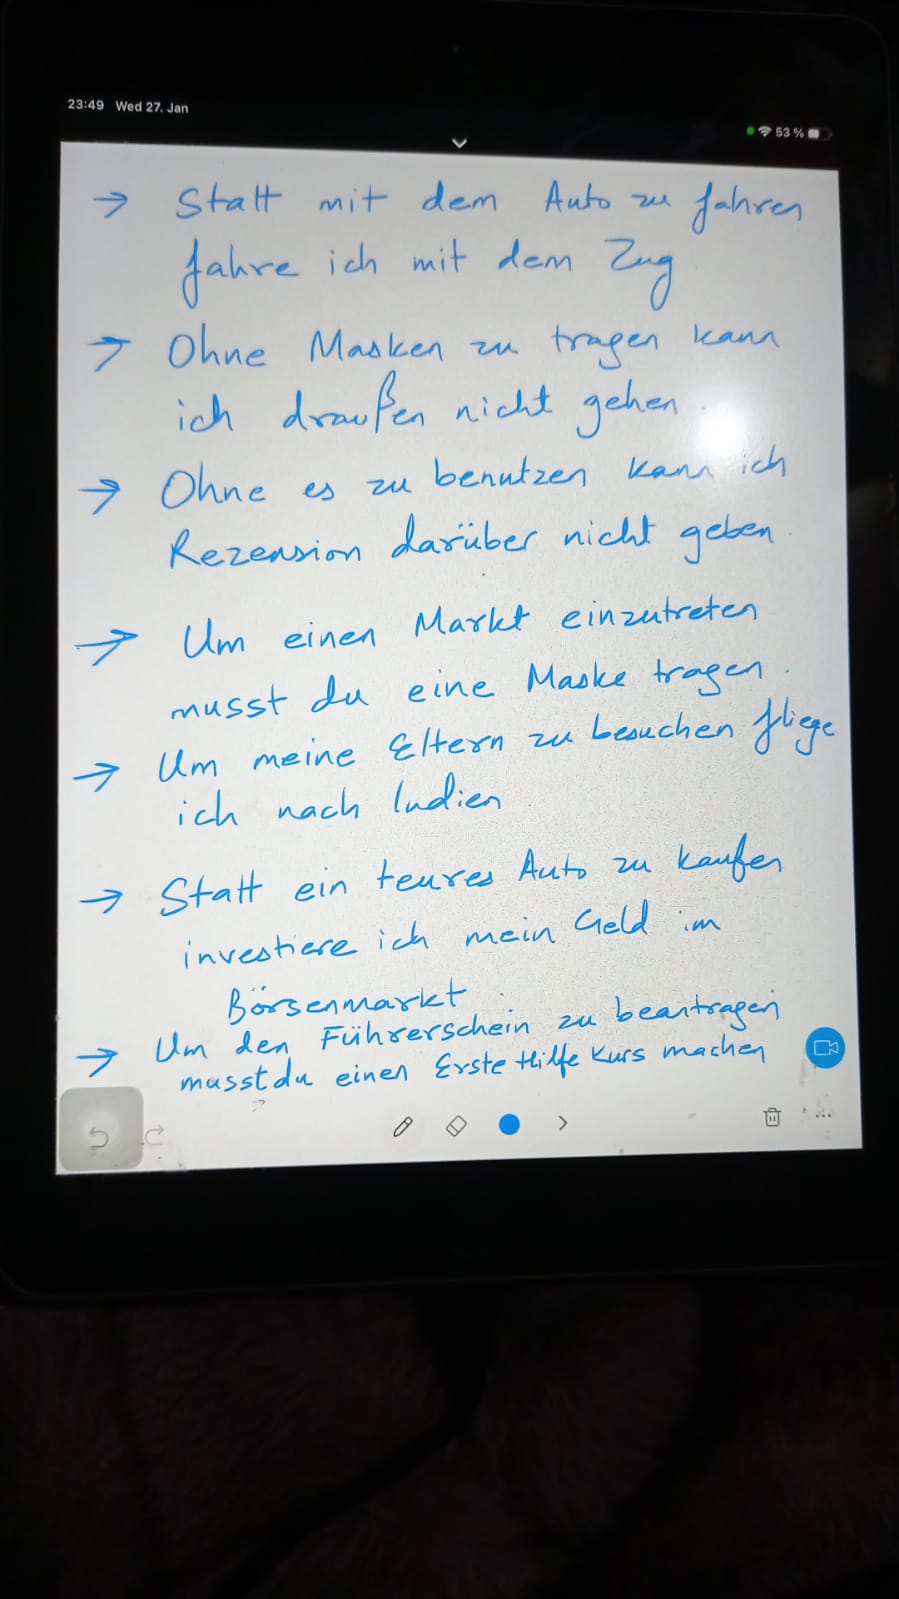 23:49 Wed 27. Jan
53 %
→ Statt mit dem Auto zu fahren
fahre ich mit dem Zug
→ Ohne Masken zu tragen kann
ich draußen nicht gehen.
→ Ohne es zu benutzen kann ich
Rezension darüber nicht geben.
→ Um einen Markt einzutreten
musst du eine Maske tragen.
→ Um meine Eltern zu besuchen fliege
ich nach Indien
→ Statt ein teures Auto zu kaufen
investiere ich mein Geld im
Börsenmarkt.
→ Um den Führerschein zu beantragen
musst du einen Erste Hilfe Kurs machen